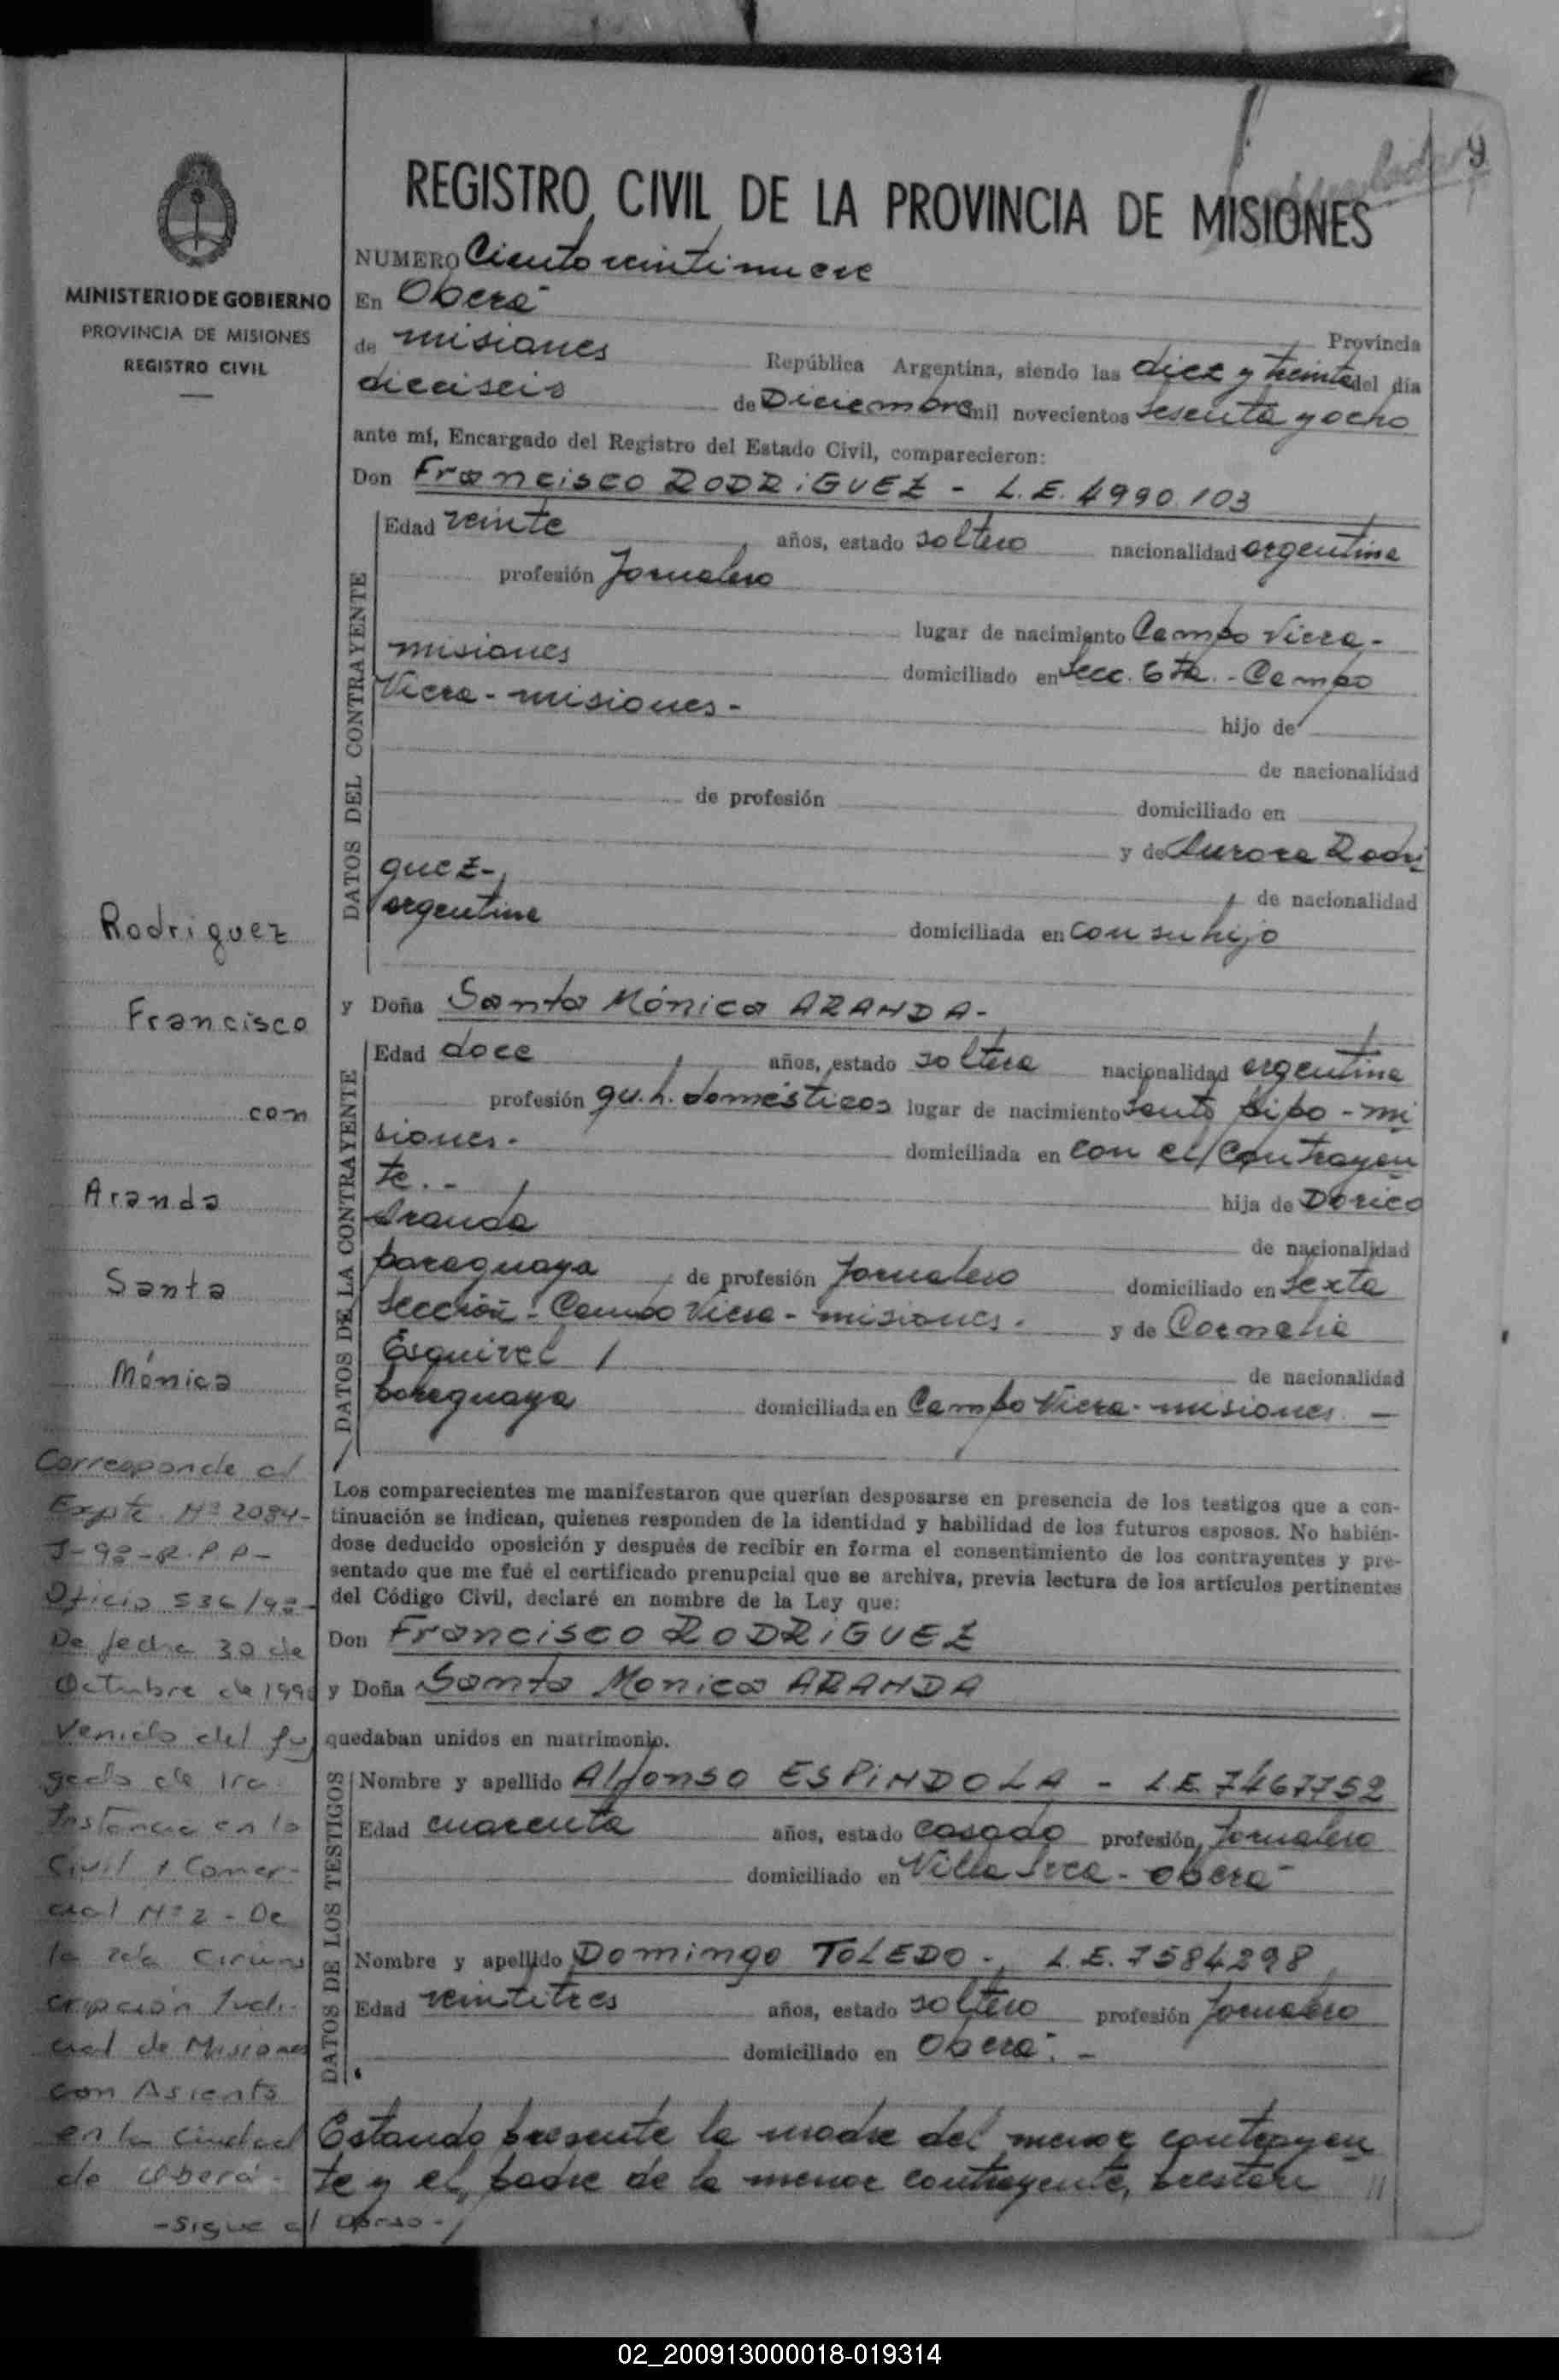 MINISTERIO DE GOBIERNO
PROVINCIA DE MISIONES
REGISTRO CIVIL
REGISTRO CIVIL DE LA PROVINCIA DE MISIONES
NUMERO Ciento veintinueve
En Oberá
Provincia
de misiones República Argentina, siendo las diez y treinta del día
dieciseis de Diciembre mil novecientos sesenta y ocho
ante mí, Encargado del Registro del Estado Civil, comparecieron:
Don Francisco RODRiGUEZ - L.E. 4990.103
DATOS DEL CONTRAYENTE
Edad veinte años, estado soltero nacionalidad argentina
profesión Jornalero
lugar de nacimiento Campo Viera -
misiones domiciliado en Secc. 6ta. - Campo
Viera - misiones -
hijo de
de nacionalidad
de profesión domiciliado en
y de Aurora Rodri
guez -
de nacionalidad
argentina domiciliada en con su hijo
y Doña Santa Mónica ARANDA -
DATOS DE LA CONTRAYENTE
Edad doce años, estado soltera nacionalidad argentina
profesión qu. h. domésticos lugar de nacimiento Santo Pipo - mi
siones - domiciliada en con el contrayen
te. - hija de Dorico
Aranda
de nacionalidad
paraguaya de profesión Jornalero domiciliado en Sexta
Sección - Campo Viera - misiones. y de Cornelia
Esquivel
de nacionalidad
paraguaya domiciliada en Campo Viera - misiones. -
Los comparecientes me manifestaron que querían desposarse en presencia de los testigos que a con-
tinuación se indican, quienes responden de la identidad y habilidad de los futuros esposos. No habién-
dose deducido oposición y después de recibir en forma el consentimiento de los contrayentes y pre-
sentado que me fué el certificado prenupcial que se archiva, previa lectura de los artículos pertinentes
del Código Civil, declaré en nombre de la Ley que:
Don Francisco RODRiGUEZ
y Doña Santa Monica ARANDA
quedaban unidos en matrimonio.
DATOS DE LOS TESTIGOS
Nombre y apellido Alfonso ESPiNDOLA - L.E. 7467752
Edad cuarenta años, estado casado profesión Jornalero
domiciliado en Villa Seca - Oberá -
Nombre y apellido Domingo TOLEDO - L.E. 7584298
Edad veintitres años, estado soltero profesión Jornalero
domiciliado en Oberá. -
Estando presente la madre del menor contrayen
te y el padre de la menor contrayente, prestan //
Rodriguez
Francisco
con
Aranda
Santa
Mónica
Corresponde al
Expte. Nº 2084-
J-98-R.P.P-
Oficio 536/98-
De fecha 30 de
Octubre de 1998
Venido del Juz
gado de 1ra
Instancia en lo
Civil y Comer-
cial Nº 2 - De
la 2da Circuns
cripción Judi-
cial de Misiones
con Asiento
en la Ciudad
de Oberá -
- Sigue al dorso -
02_200913000018-019314